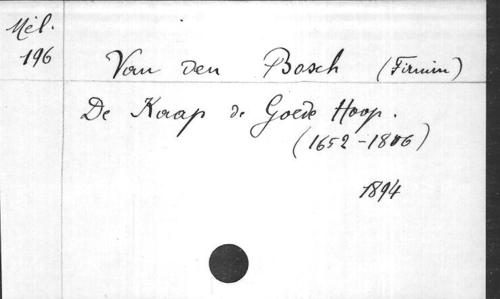 Mél.
196
Van den Bosch (Firmin)
De Kaap de Goede Hoop.
(1652-1806)
1894